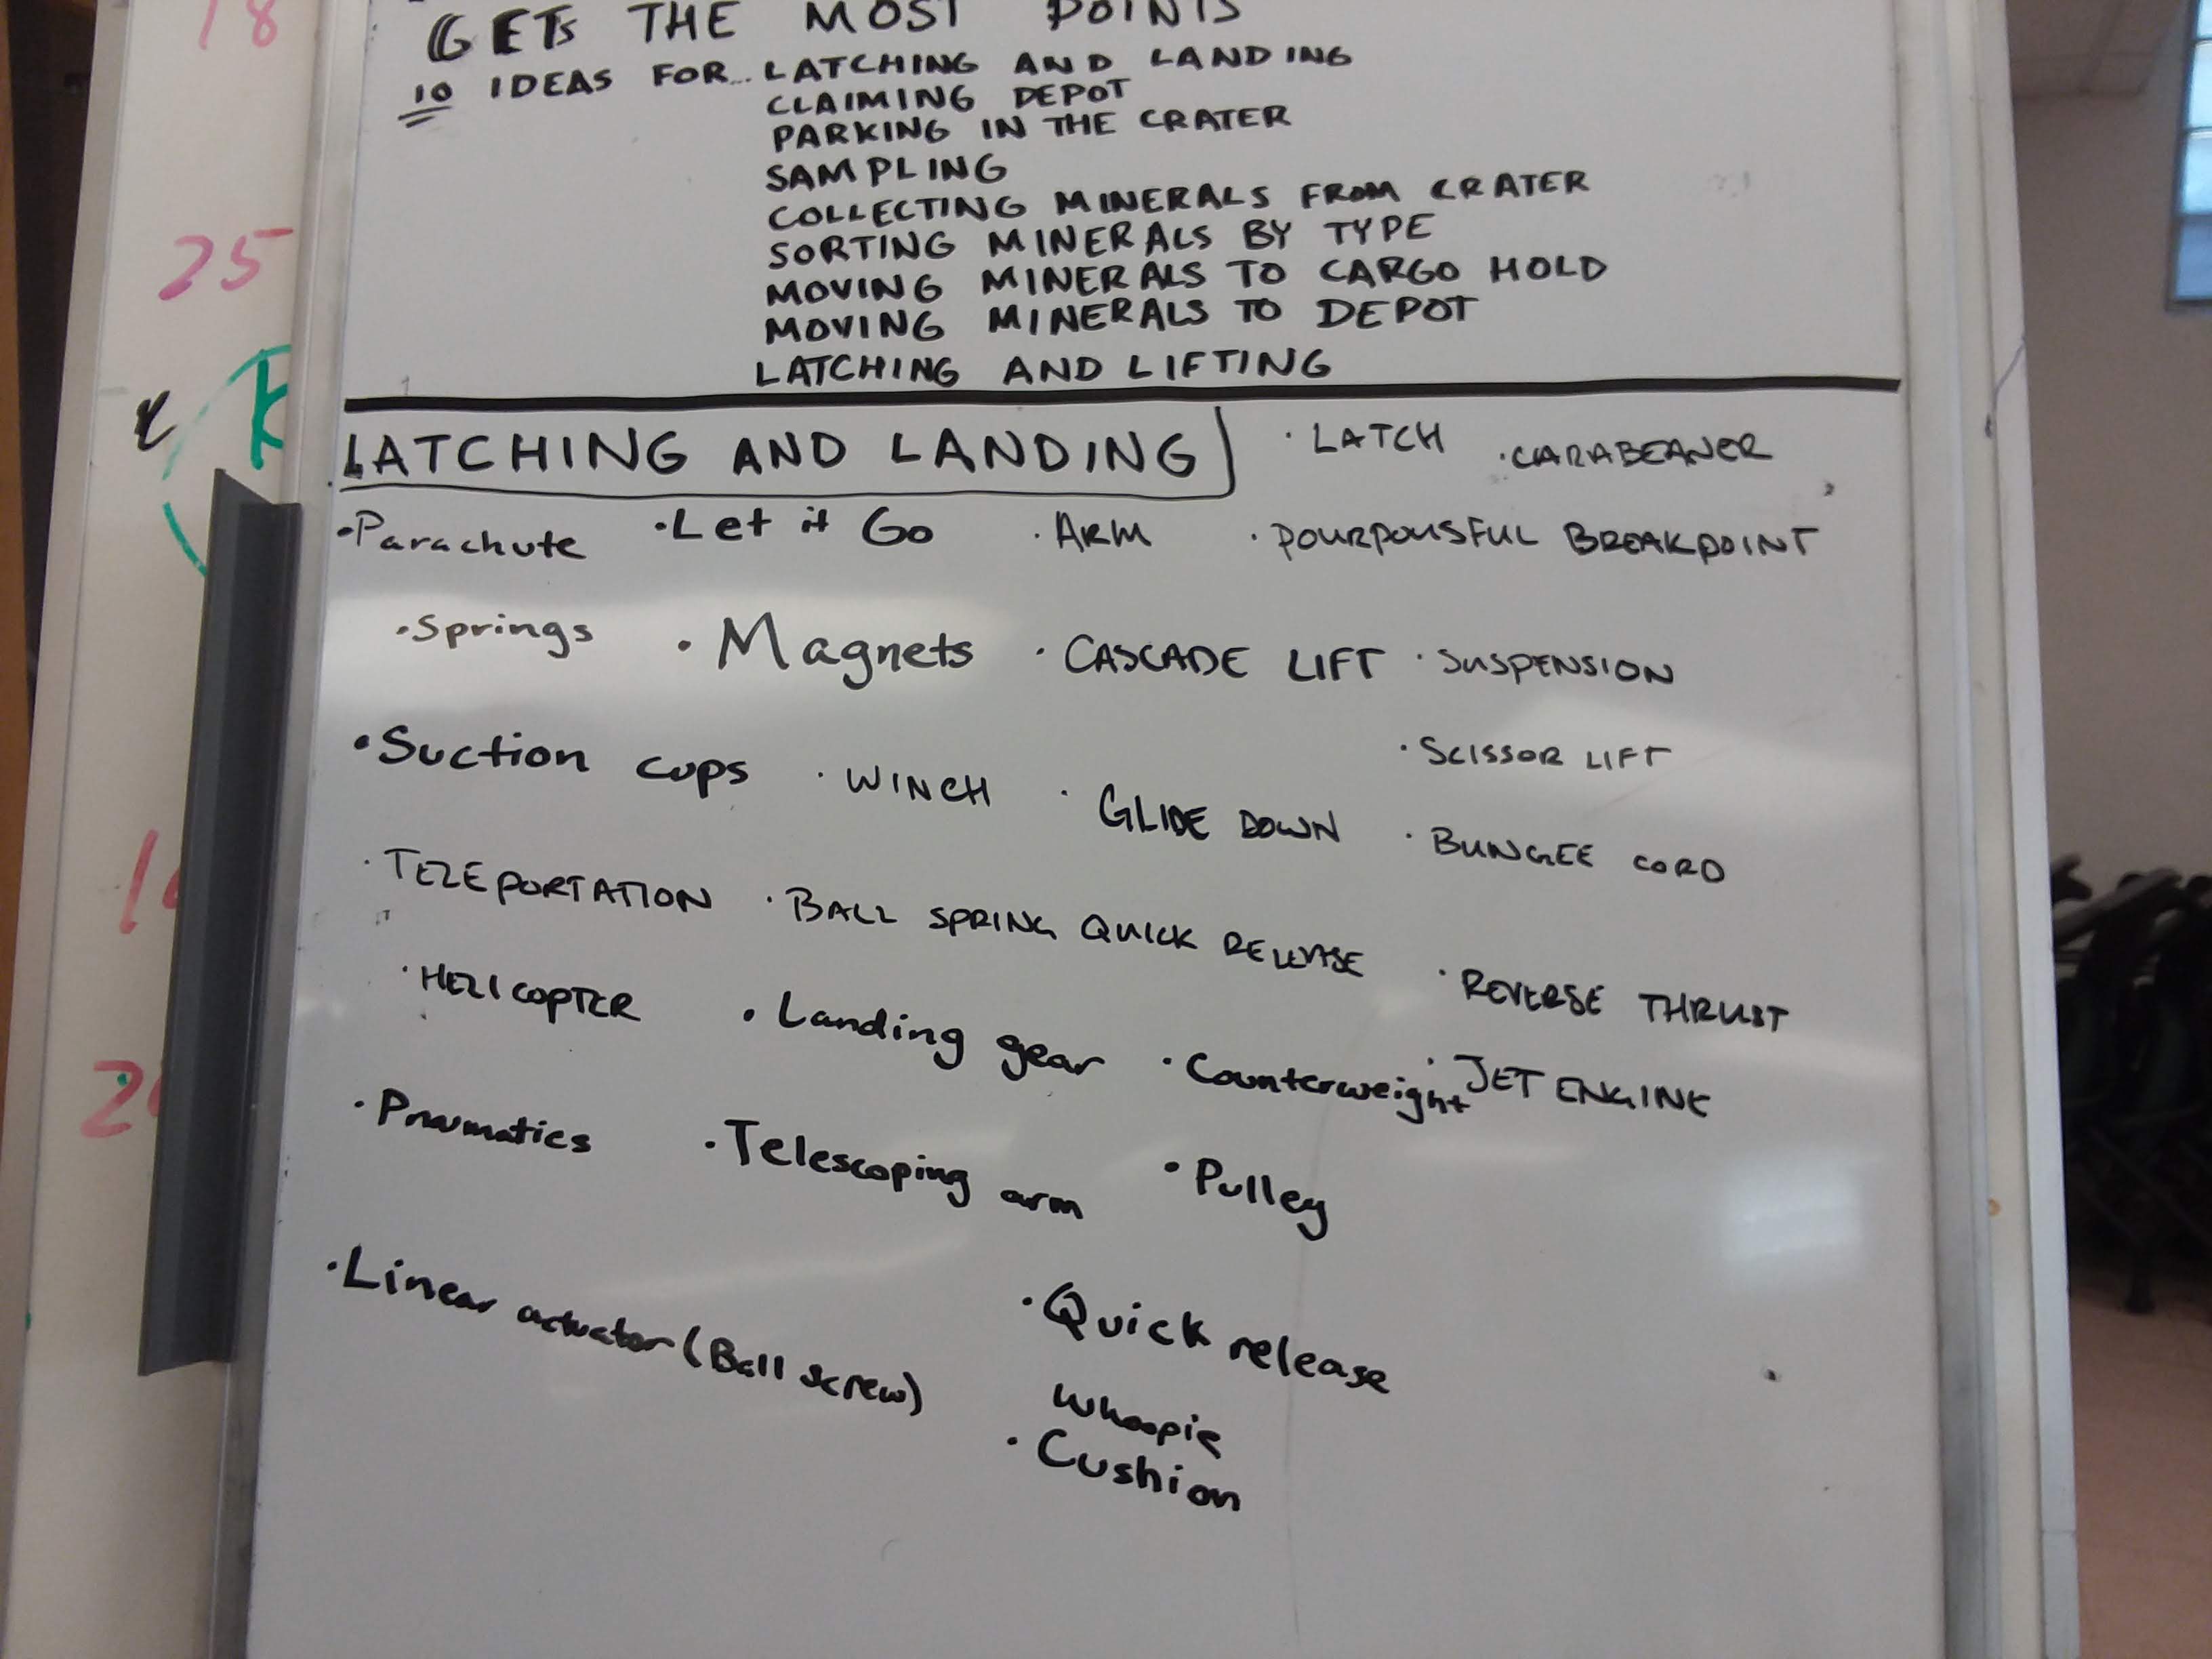 GETS THE MOST POINTS
10 IDEAS FOR... LATCHING AND LANDING
CLAIMING DEPOT
PARKING IN THE CRATER
SAMPLING
COLLECTING MINERALS FROM CRATER
SORTING MINERALS BY TYPE
MOVING MINERALS TO CARGO HOLD
MOVING MINERALS TO DEPOT
LATCHING AND LIFTING
LATCHING AND LANDING · LATCH · CARABEANER
· Parachute · Let it Go · ARM · POURPOUSFUL BREAKPOINT
· Springs · Magnets · CASCADE LIFT · SUSPENSION
· Suction cups · WINCH · GLIDE DOWN · SCISSOR LIFT
· BUNGEE CORD
· TELEPORTATION · BALL SPRING QUICK RELEASE · REVERSE THRUST
· HELICOPTER · Landing gear · Counterweight · JET ENGINE
· Pnumatics · Telescoping arm · Pulley
· Linear actuator (Ball screw) · Quick release
Whoopie
· Cushion
18
25